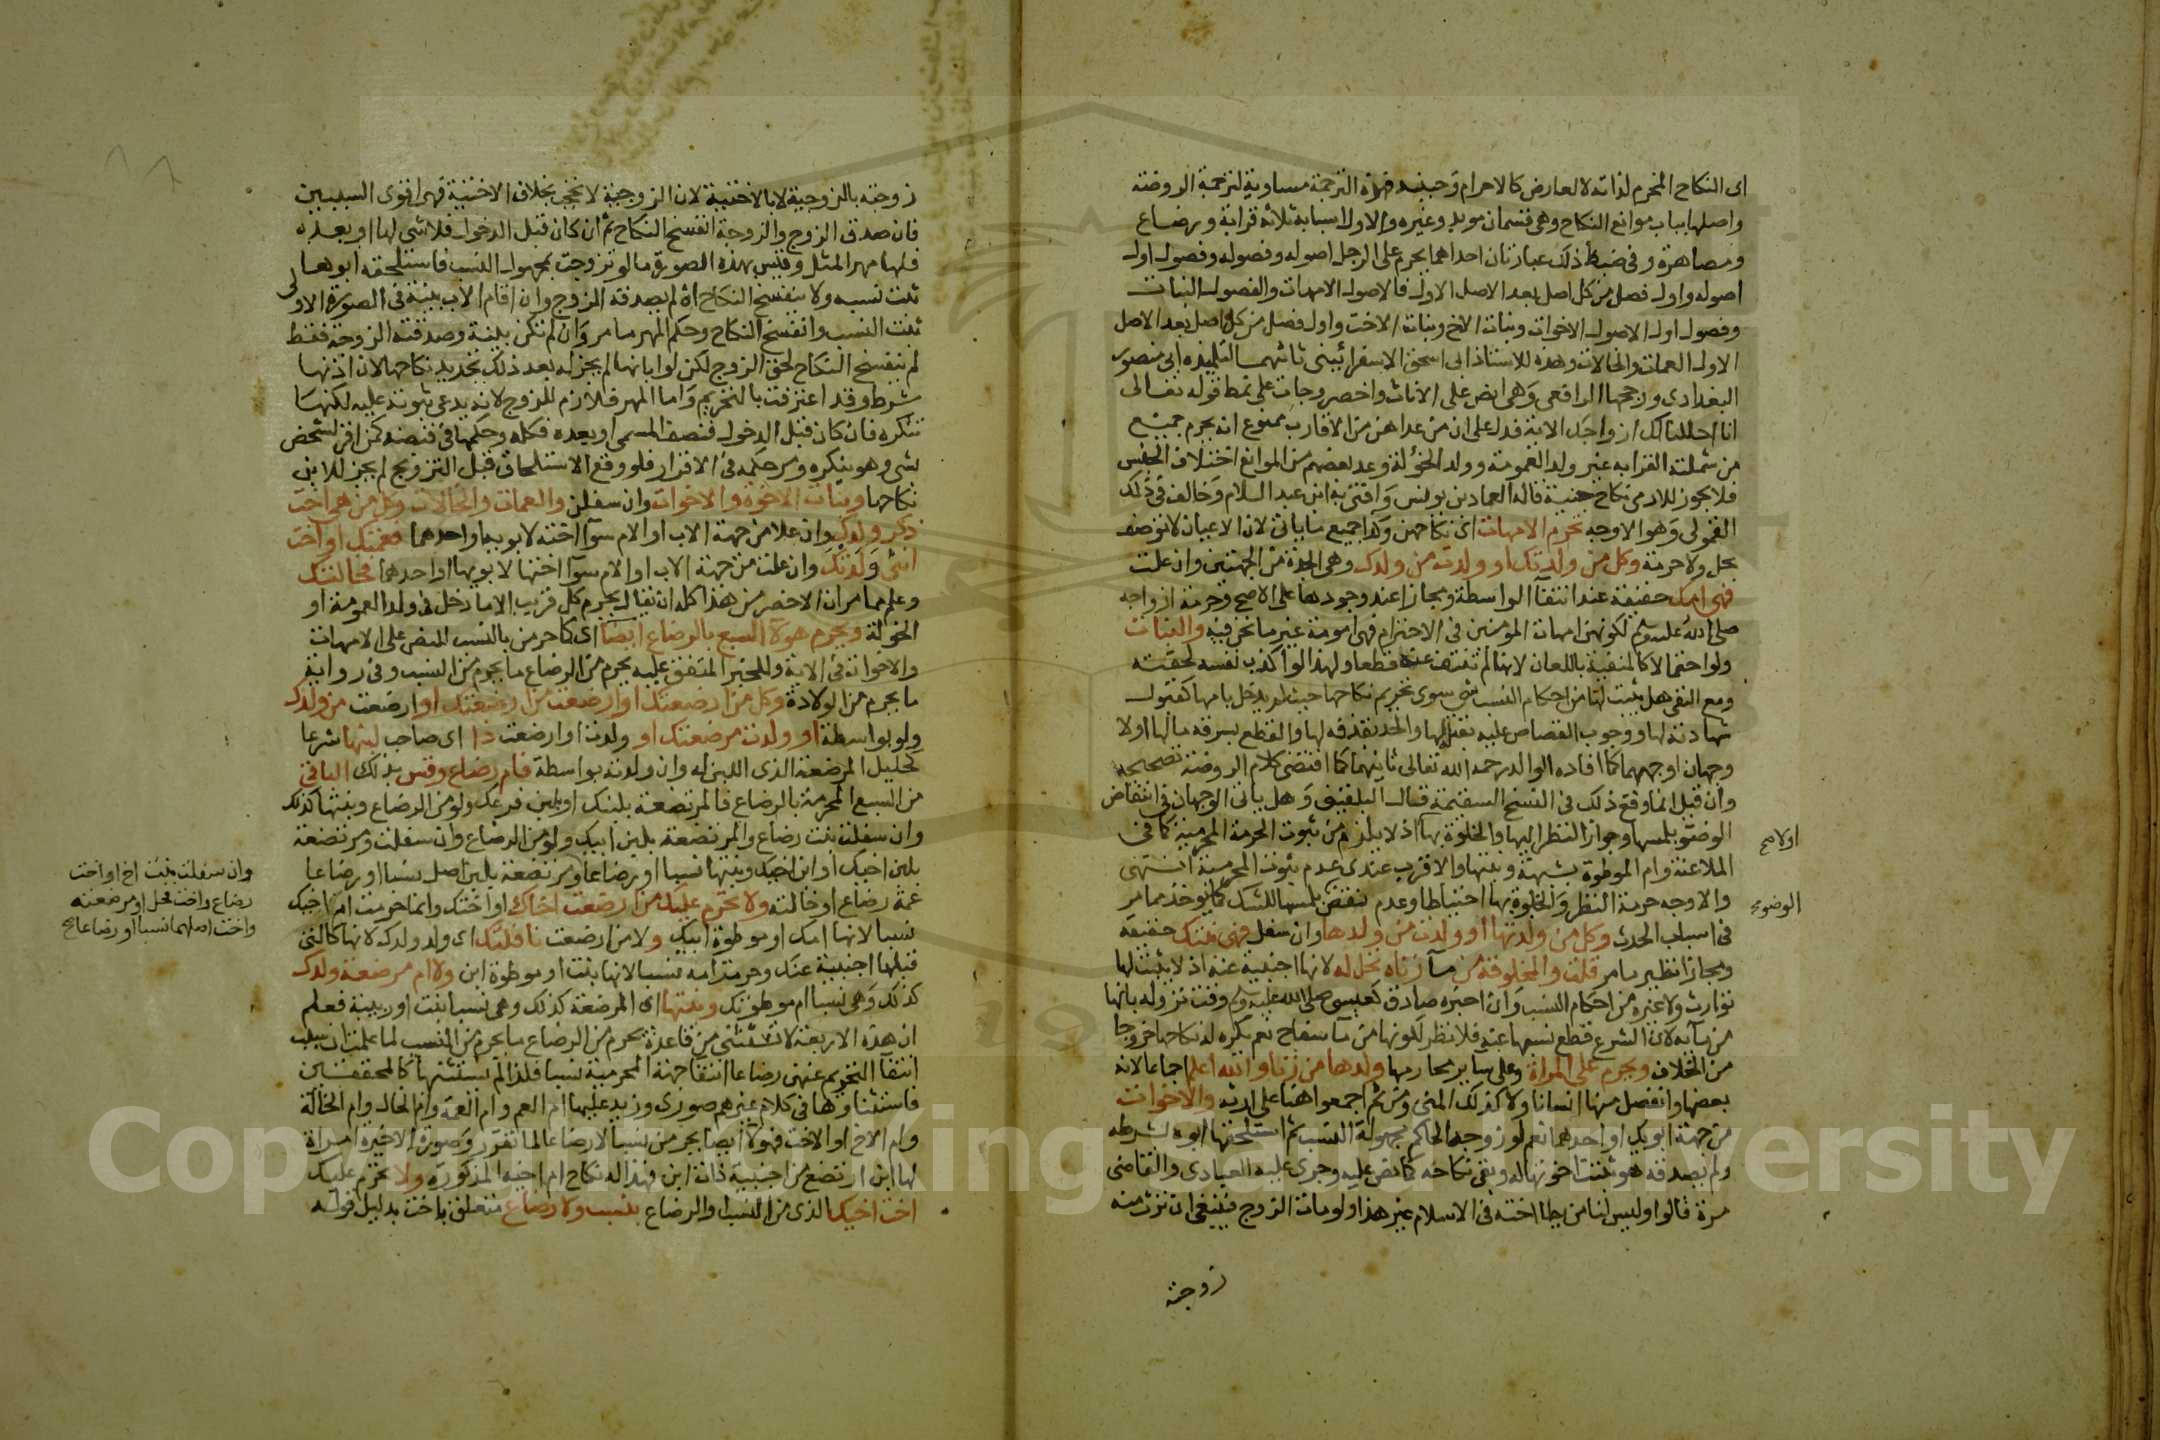 اى النكاح المحرم لذاته لا لعارض كالاحرام وحينئذ فهذه الترجمة مساوية لترجمة الروضة
واصلها بباب موانع النكاح وهى قسمان موبد وغيره والاول اسبابه ثلاثة قرابة ورضاع
ومصاهرة وفى ضبط ذلك عبارتان احداهما يحرم على الرجل اصوله وفصوله وفصول اول
اصوله واول فصل من كل اصل بعد الاصل الاول فالاصول الامهات والفصول البنات
وفصول اول الاصول الاخوات وبنات الاخ وبنات الاخت واول فصل من كل اصل بعد الاصل
الاول العمات والخالات وهذه للاستاذ ابى اسحق الاسفرائينى ثانيتهما لتلميذه ابى منصور
البغدادى ورجحها الرافعى وهى انص على الاناث واخصر وجات على نمط قوله تعالى
انا احللنا لك ازواجك الاية فدل على ان من عداهن من الاقارب ممنوع انه يحرم جميع
من شملته القرابه غير ولد العمومة وولد الخؤلة وعد بعضهم من الموانع اختلاف الجنس
فلا يجوز للادمى نكاح جنية قاله العماد بن يونس وافتى به ابن عبد السلام وخالف فى ذلك
القمولى وهو الاوجه تحرم الامهات اى نكاحهن وكذا جميع ما ياتى لان الاعيان لا توصف
بحل ولا حرمة وكل من ولدتك او ولدت من ولدك وهى الجدة من الجهتين وان علت
فهى امك حقيقة عند انتفآ الواسطة ومجازا عند وجودها على الاصح وحرمة ازواجه
صلى الله عليه وسلم لكونهن امهات المومنين فى الاحترام فهى امومة غير ما نحن فيه والبنات
ولو احتمالا كالمنفية باللعان لانها لم تنتف عنه قطعا ولهذا لو اكذب نفسه لحقته
ومع النفى هل يثبت لها من احكام النسب شى سوى تحريم نكاحها حيث لم يدخل بامها كقبول
شهادته لها ووجوب القصاص عليه بقتله لها والحد بقذفه لها والقطع بسرقة مالها اولا
وجهان اوجههما كما افاده الوالد رحمه الله تعالى ثانيهما كما اقتضى كلام الروضة تصحيحه
وان قيل انما وقع ذلك فى النسخ السقيمة قال البلقينى وهل ياتى الوجهان فى انتقاض
الوضو بلمسها وجواز النظر اليها والخلوة بها اذ لا يلزم من ثبوت الحرمة المحرمية كما فى
الملاعنة وام الموطوة بشبهة وبنتها والاقرب عندى عدم ثبوت المحرمية انتهى
والاوجه حرمة النظر والخلوة بها احتياطا وعدم نقض بلمسها للشك كما يوخذ مما مر
فى اسباب الحدث وكل من ولدتها او ولدت من ولدها وان سفل فهى بنتك حقيقة
ومجازا نظير ما مر قلت والمخلوقة من مآ زناه تحل له لانها اجنبية عنه اذ لا يثبت لها
توارث ولا غيره من احكام النسب وان اخبره صادق كعيسى صلى الله عليه وسلم وقت نزوله بانها
من مآئه لان الشرع قطع نسبها عنه فلا نظر لكونها من مآ سفاح نعم يكره له نكاحها خروجا
من الخلاف ويحرم على المراة وعلى سائر محارمها ولدها من زنا والله اعلم اجماعا لانه
بعضها وانفصل منها انسانا ولا كذلك المنى ومن ثم اجمعوا هنا على ارثه والاخوات
من جهة ابويك او احدهما نعم لو زوجه الحاكم مجهولة النسب ثم استلحقها ابوه بشرطه
ولم يصدقه هو ثبتت اخوتها له وبقى نكاحه كما نص عليه وجرى عليه العبادى والقاضى
مرة قالوا وليس لنا من يطا اخته فى الاسلام غير هذا ولو مات الزوج فينبغى ان ترث منه
زوجته
اولا صح
الوضوء صح
زوجته بالزوجية لا بالاختية لان الزوجية لا تحجب بخلاف الاختية فهى اقوى السببين
فان صدق الزوج والزوجة انفسخ النكاح ثم ان كان قبل الدخول فلا شى لها او بعده
فلها مهر المثل وقيس بهذه الصورة ما لو تزوجت بمجهول النسب فاستلحقه ابوها
ثبت نسبه ولا ينفسخ النكاح اذ لم يصدقه الزوج وان اقام الاب بينة فى الصورة الاولى
ثبت النسب وانفسخ النكاح وحكم المهر ما مر وان لم تكن بينة وصدقته الزوجة فقط
لم ينفسخ النكاح لحق الزوج لكن لو ابانها لم يجز له بعد ذلك تجديد نكاحها لان اذنها
شرط وقد اعترفت بالتحريم واما المهر فلازم للزوج لانه يدعى ثبوته عليه لكنها
تنكره فان كان قبل الدخول فنصف المسمى او بعده فكله وحكمها فى قبضه كمن اقر لشخص
بشى وهو ينكره ومر حكمه فى الاقرار فلو وقع الاستلحاق قبل التزويج لم يجز للابن
نكاحها وبنات الاخوة والاخوات وان سفلن والعمات والخالات وكل من هى اخت
ذكر ولدك وان علا من جهة الاب او الام سوآ اخته لابويه او احدهما فعمتك او اخت
انثى ولدتك وان علت من جهة الاب او الام سوآ اختها لابويها او احدهما فخالتك
وعلم مما مر ان الاخصر من هذا كله ان يقال يحرم كل قريب الا ما دخل فى ولد العمومة او
الخؤلة ويحرم هولآ السبع بالرضاع ايضا اى كما حرمن بالنسب للنص على الامهات
والاخوات فى الاية وللخبر المتفق عليه يحرم من الرضاع ما يحرم من النسب وفى رواية
ما يحرم من الولادة وكل من ارضعتك او ارضعت من ارضعتك او ارضعت من ولدك
ولو بواسطة او ولدت مرضعتك او ولدت او ارضعت ذا اى صاحب لبنها شرعا
كحليل المرضعة الذى اللبن له وان ولدته بواسطة فام رضاع وقس بذلك الباقى
من السبع المحرمة بالرضاع فالمرتضعة بلبنك او بلبن فرعك ولو من الرضاع وبنتها كذلك
وان سفلت بنت رضاع والمرتضعة بلبن ابيك ولو من الرضاع وان سفلت ومرتضعة
بلبن اخيك او ابن اخيك وبنتها نسبا او رضاعا ومرتضعة بلبن اصل نسبا او رضاعا
عمة رضاع او خالته ولا تحرم عليك من ارضعت اخاك او اختك وانما حرمت ام اخيك
نسبا لانها امك او موطوة ابيك ولا من ارضعت نافلتك اى ولد ولدك لانها كالتى
قبلها اجنبية عنك وحرمت امه نسبا لانها بنت او موطوة ابن ولا ام مرضعة ولدك
كذلك وهى نسبا ام موطوتك وبنتها اى المرضعة كذلك وهى نسبا بنت او ربيبة فعلم
ان هذه الاربعة لا تستثنى من قاعدة يحرم من الرضاع ما يحرم من النسب لما علمت ان سبب
انتفآ التحريم عنهن رضاعا انتفآ جهة المحرمية نسبا فلذا لم يستثنها كالمحققين
فاستثناوها فى كلام غيرهم صورى وزيد عليها ام العم وام العمة وام الخال وام الخالة
وام الاخ او الاخت فهولآ ايضا يحرمن نسبا لا رضاعا لما تقرر وصورة الاخيرة امراة
لها ابن ارتضع من اجنبية ذات ابن فهذا له نكاح ام اخيه المذكورة ولا تحرم عليك
اخت اخيك الذى من النسب او الرضاع بنسب ولا رضاع متعلق باخت بدليل قوله
وان سفلت بنت اخ او اخت
رضاع واخت فحل او مرضعة
واخت اصلهما نسبا او رضاعا صح